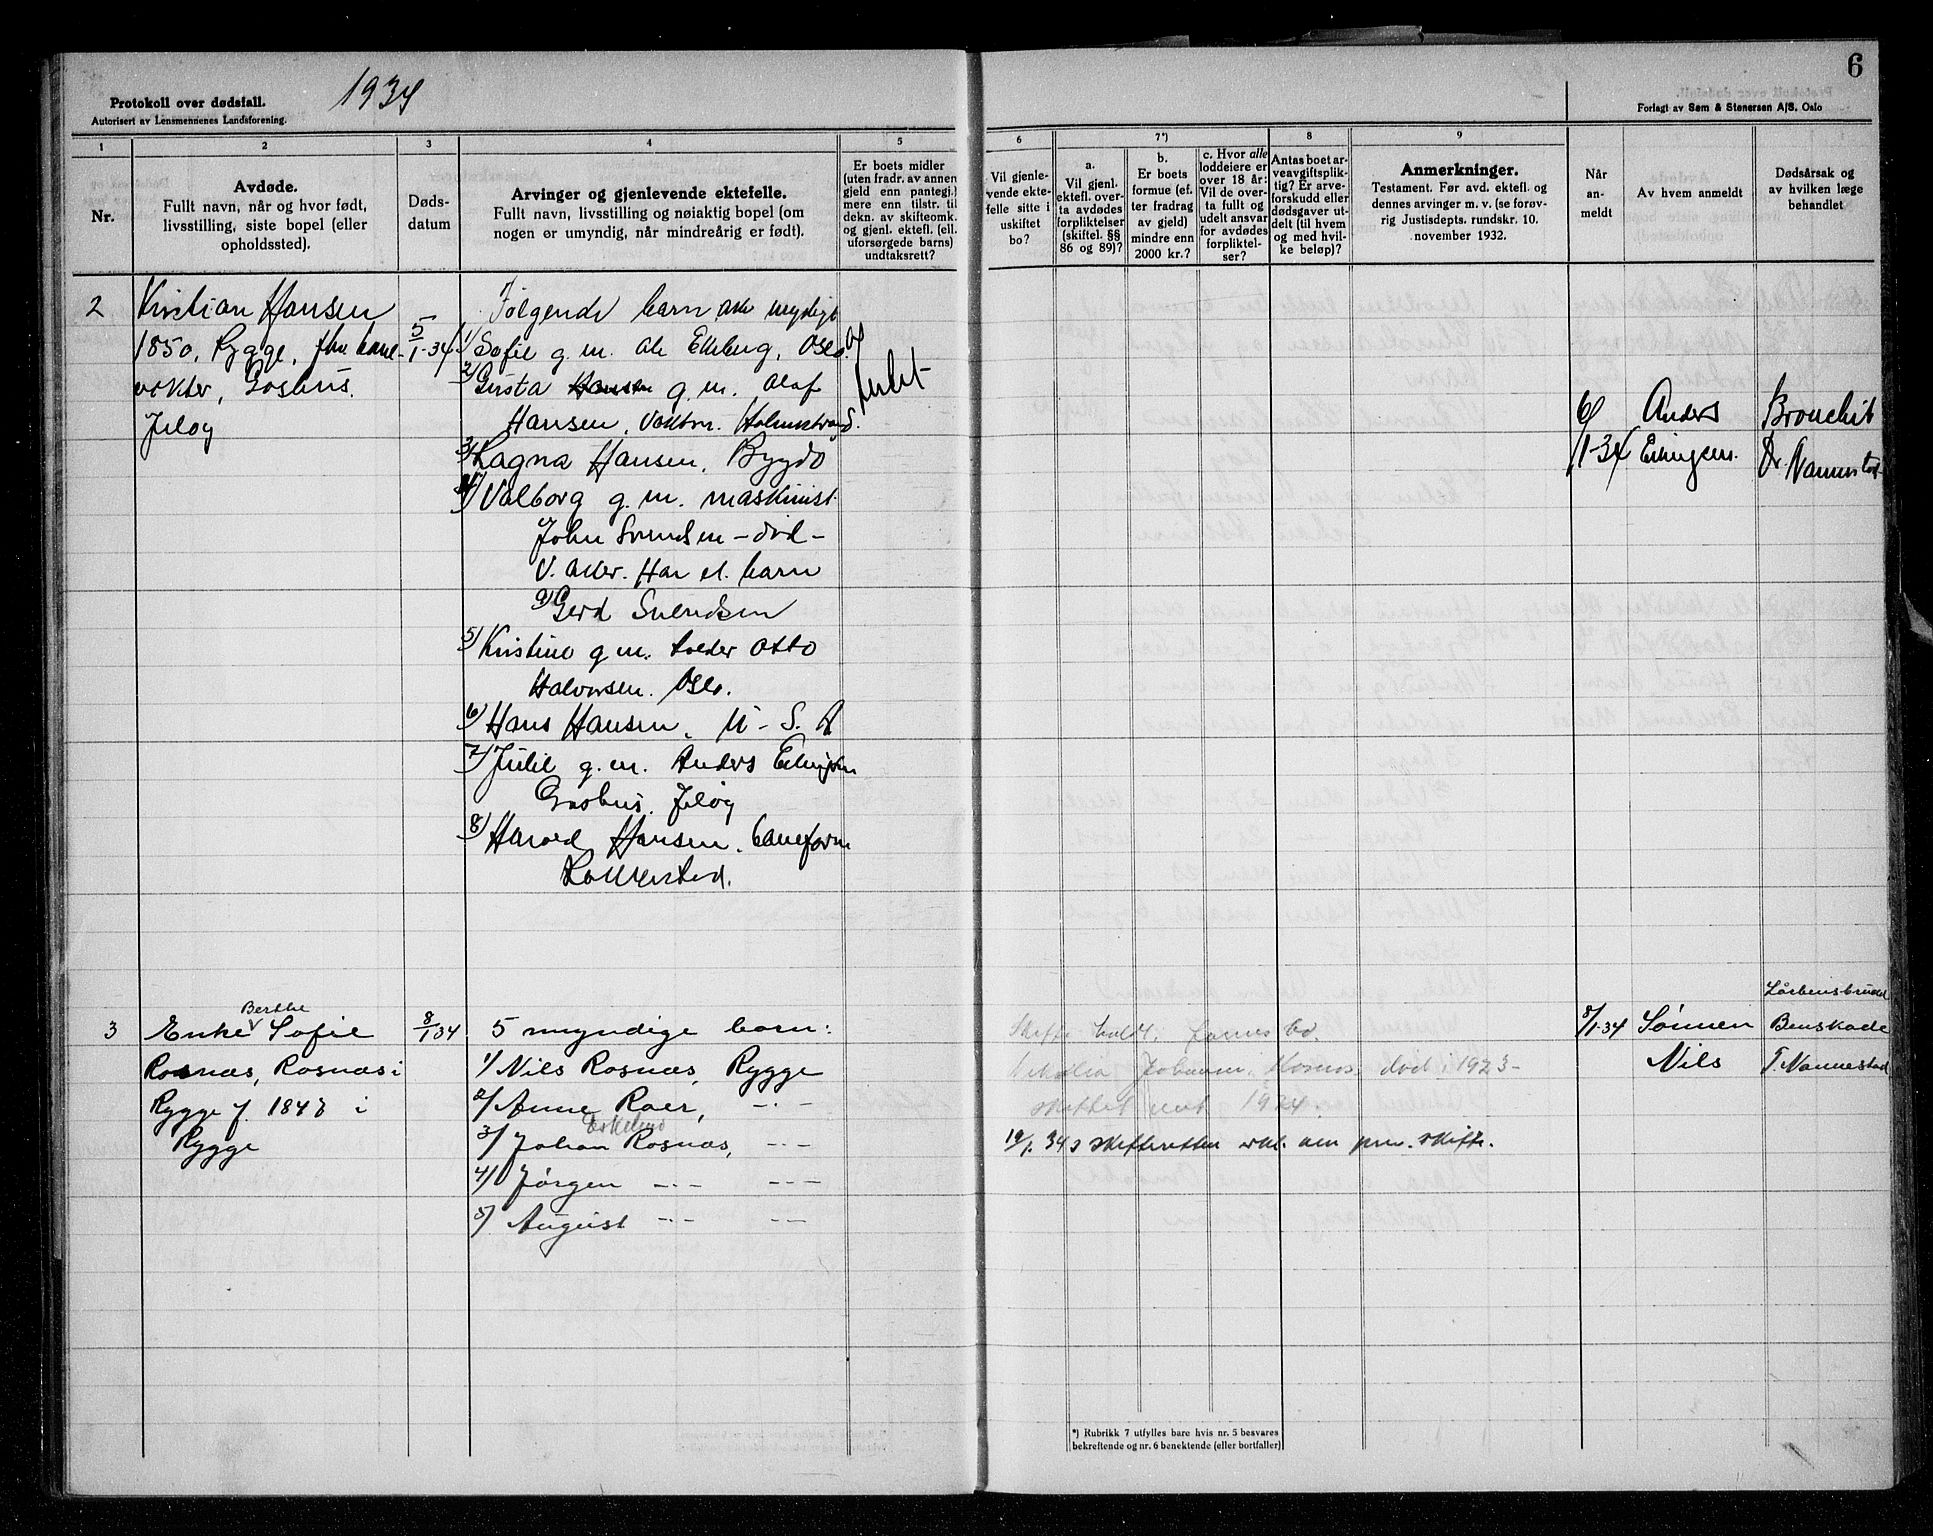 Protokoll over dødsfall.
Autorisert av Lensmennenes Landsforening.
1934
6
Forlagt av Sem & Stenersen A/S, Oslo
1
Nr.
2
Avdøde.
Fullt navn, når og hvor født,
livsstilling, siste bopel (eller
opholdssted).
3
Døds-
datum
4
Arvinger og gjenlevende ektefelle.
Fullt navn, livsstilling og nøiaktig bopel (om
nogen er umyndig, når mindreårig er født).
5
Er boets midler
(uten fradr. av annen
gjeld enn pantegj.)
mere enn tilstr. til
dekn. av skifteomk.
og gjenl. ektefl. (ell.
uforsørgede barns)
undtaksrett?
6
Vil gjenle-
vende ekte-
felle sitte i
uskiftet
bo?
7*)
a.
Vil gjenl.
ektefl. over-
ta avdødes
forpliktelser
(skiftel. §§
86 og 89)?
b.
Er boets
formue (ef-
ter fradrag
av gjeld)
mindre enn
2000 kr.?
c. Hvor alle
loddeiere er
over 18 år:
Vil de over-
ta fullt og
udelt ansvar
for avdødes
forpliktel-
ser?
8
Antas boet ar-
veavgiftsplik-
tig? Er arve-
forskudd eller
dødsgaver ut-
delt (til hvem
og med hvil-
ke beløp)?
9
Anmerkninger.
Testament. Før avd. ektefl. og
dennes arvinger m. v. (se forøv-
rig Justisdepts. rundskr. 10.
november 1932.
Når
an-
meldt
Av hvem anmeldt
Dødsårsak og
av hvilken læge
behandlet
2
Kristian Hansen
1850, Rygge, fhv. bane-
vokter, Goshus.
Jeløy
5/1-34
Følgende barn, alle myndige
1) Sofie g. m. Ole Ekeberg, Oslo.
2) Gusta Hansen g. m. Olaf
Hansen, Vaktm. Holmestrand.
3) Ragna Hansen, Bygdø
4) Valborg g. m. maskinist
John Svendsen – død –
V. Aker. Har et barn
a) Gerd Svendsen
5) Kristine g. m. tolder Otto
Halvorsen. Oslo.
6) Hans Hansen, U. S. A
7) Julie g. m. Anders Erlingsen
Goshus, Jeløy
8) Harald Hansen, baneform
Rakkestad.
6/1-34
Anders
Erlingsen.
Bronchit
Dr. Nannestad
3
Enke Berthe Sofie
Rosnæs, Rosnæs i
Rygge f. 1848 i
Rygge
8/1 34
5 myndige barn:
1/ Nils Rosnæs, Rygge
2/ Anne Roer, –·–
3/ Johan Rosnæs, –·–
4/ Jørgen –·– –·–
5/ August –·– –·–
død i 1923 –
skiftet 1924.
skifteretten erkl. om priv. skifte.
8/1-34
Sønnen
Nils
Lårbensbrudd
Benskade
T. Nannestad
*) Rubrikk 7 utfylles bare hvis nr. 5 besvares
bekreftende og nr. 6 benektende (eller bortfaller)